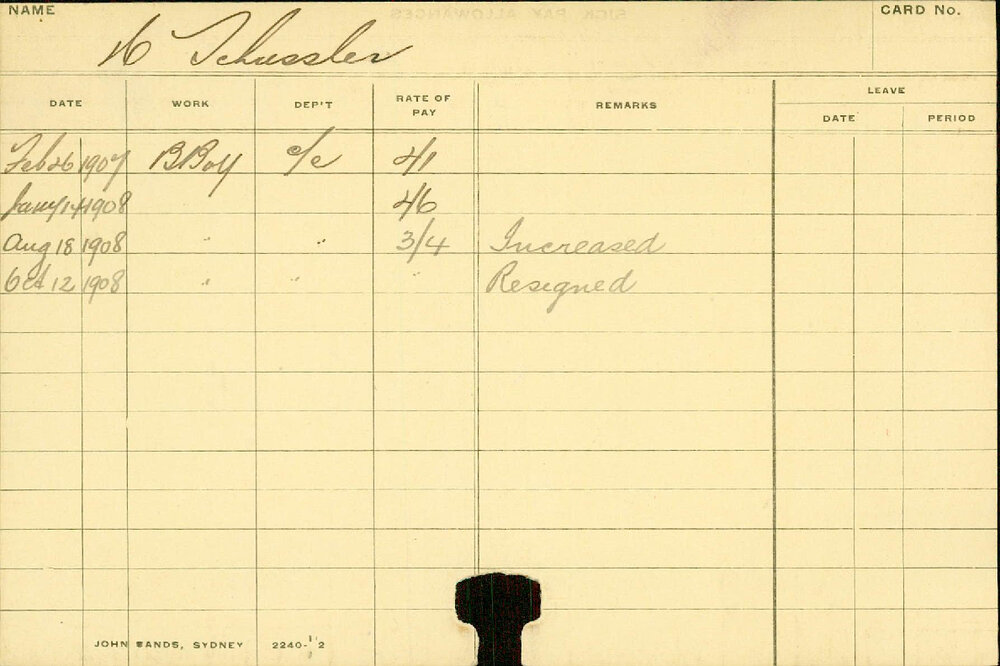 NAME
CARD No.
H Schussler
LEAVE
DATE WORK DEP'T RATE OF PAY REMARKS DATE PERIOD
Feb 26 1907 B Boy c/e 4/1
Jany 14 1908 4/6
Aug 18 1908 " " 3/4 Increased
Oct 12 1908 " " " Resigned
JOHN SANDS, SYDNEY 2240-